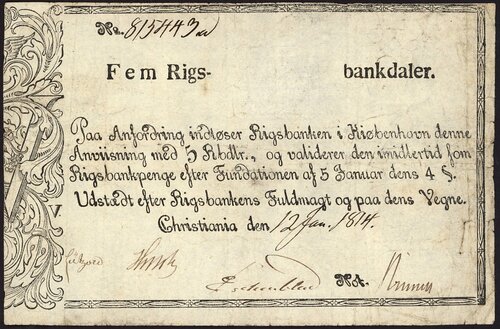 No. 815443
Fem Rigs- bankdaler.
Paa Anfordring indløser Rigsbanken i Kiøbenhavn denne
Anviisning med 5 Rbdlr., og validerer den imidlertid som
Rigsbankpenge efter Fundationen af 5 Januar dens 4 §.
Udstædt efter Rigsbankens Fuldmagt og paa dens Vegne.
Christiania den 12 Jan. 1814.
V.
Not.